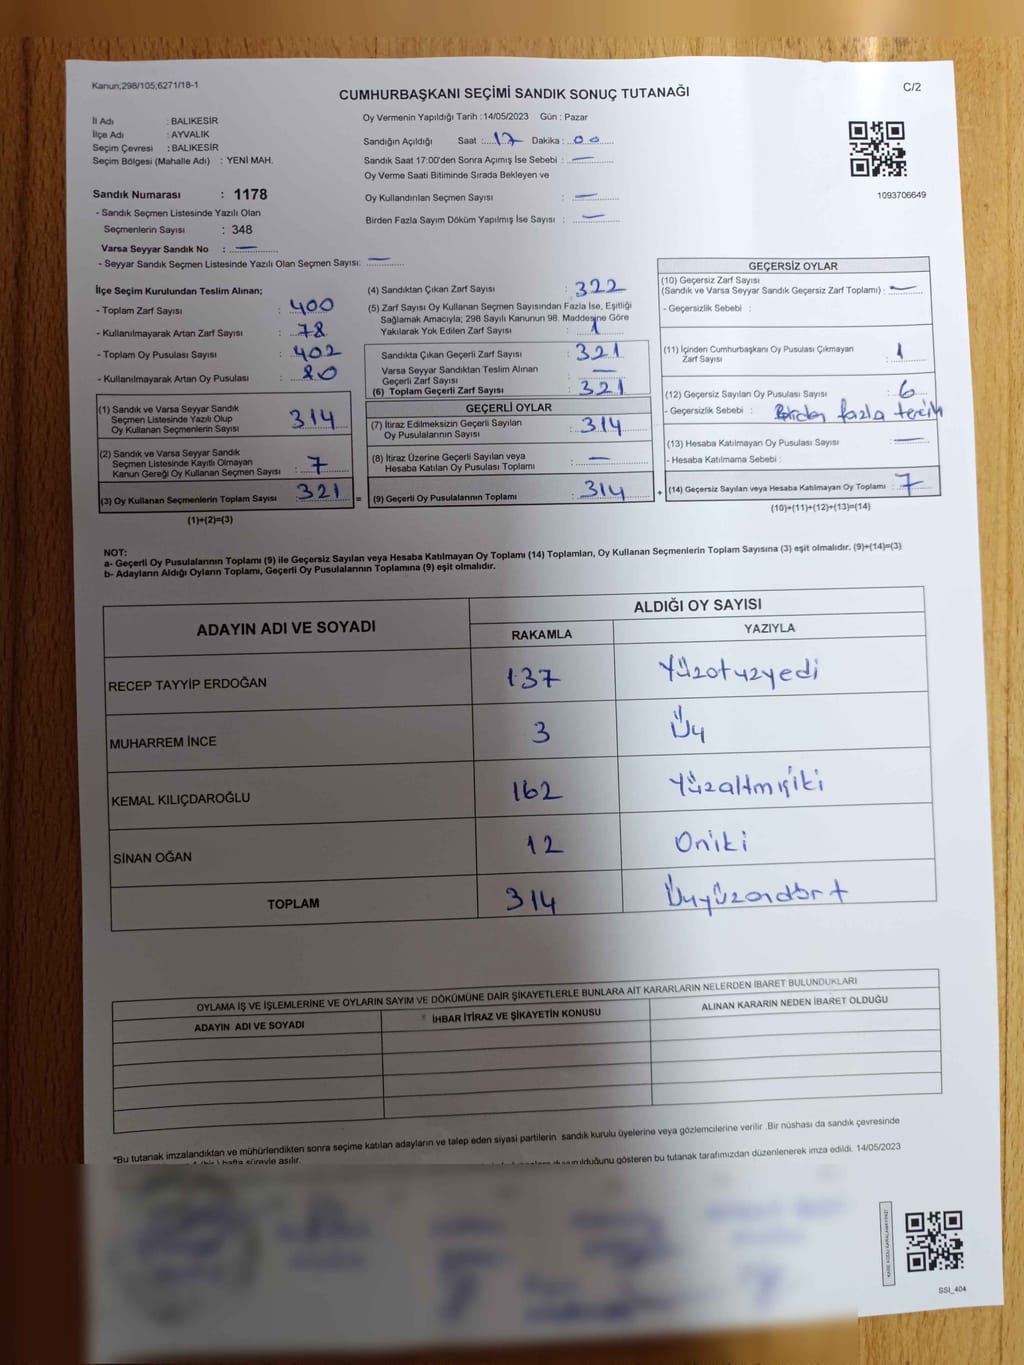 Kanun;298/105;6271/18-1
C/2
CUMHURBAŞKANI SEÇİMİ SANDIK SONUÇ TUTANAĞI
İl Adı : BALIKESİR
İlçe Adı : AYVALIK
Seçim Çevresi : BALIKESİR
Seçim Bölgesi (Mahalle Adı) : YENİ MAH.
Sandık Numarası : 1178
- Sandık Seçmen Listesinde Yazılı Olan
Seçmenlerin Sayısı : 348
Varsa Seyyar Sandık No : —
- Seyyar Sandık Seçmen Listesinde Yazılı Olan Seçmen Sayısı: —
Oy Vermenin Yapıldığı Tarih : 14/05/2023 Gün : Pazar
Sandığın Açıldığı Saat : 17 Dakika : 00
Sandık Saat 17:00'den Sonra Açımış İse Sebebi : —
Oy Verme Saati Bitiminde Sırada Bekleyen ve
Oy Kullandırılan Seçmen Sayısı : —
Birden Fazla Sayım Döküm Yapılmış İse Sayısı : —
1093706649
İlçe Seçim Kurulundan Teslim Alınan;
- Toplam Zarf Sayısı : 400
- Kullanılmayarak Artan Zarf Sayısı : 78
- Toplam Oy Pusulası Sayısı : 402
- Kullanılmayarak Artan Oy Pusulası : 80
(1) Sandık ve Varsa Seyyar Sandık
Seçmen Listesinde Yazılı Olup
Oy Kullanan Seçmenlerin Sayısı : 314
(2) Sandık ve Varsa Seyyar Sandık
Seçmen Listesinde Kayıtlı Olmayan
Kanun Gereği Oy Kullanan Seçmen Sayısı : 7
(3) Oy Kullanan Seçmenlerin Toplam Sayısı : 321
(1)+(2)=(3)
(4) Sandıktan Çıkan Zarf Sayısı : 322
(5) Zarf Sayısı Oy Kullanan Seçmen Sayısından Fazla İse, Eşitliği
Sağlamak Amacıyla; 298 Sayılı Kanunun 98. Maddesine Göre
Yakılarak Yok Edilen Zarf Sayısı : 1
Sandıkta Çıkan Geçerli Zarf Sayısı : 321
Varsa Seyyar Sandıktan Teslim Alınan
Geçerli Zarf Sayısı : —
(6) Toplam Geçerli Zarf Sayısı : 321
GEÇERLİ OYLAR
(7) İtiraz Edilmeksizin Geçerli Sayılan
Oy Pusulalarının Sayısı : 314
(8) İtiraz Üzerine Geçerli Sayılan veya
Hesaba Katılan Oy Pusulası Toplamı : —
= (9) Geçerli Oy Pusulalarının Toplamı : 314
GEÇERSİZ OYLAR
(10) Geçersiz Zarf Sayısı
(Sandık ve Varsa Seyyar Sandık Geçersiz Zarf Toplamı) : —
- Geçersizlik Sebebi :
(11) İçinden Cumhurbaşkanı Oy Pusulası Çıkmayan
Zarf Sayısı : 1
(12) Geçersiz Sayılan Oy Pusulası Sayısı : 6
- Geçersizlik Sebebi : Birden fazla tercih
(13) Hesaba Katılmayan Oy Pusulası Sayısı : —
- Hesaba Katılmama Sebebi :
+ (14) Geçersiz Sayılan veya Hesaba Katılmayan Oy Toplamı : 7
(10)+(11)+(12)+(13)=(14)
NOT:
a- Geçerli Oy Pusulalarının Toplamı (9) ile Geçersiz Sayılan veya Hesaba Katılmayan Oy Toplamı (14) Toplamları, Oy Kullanan Seçmenlerin Toplam Sayısına (3) eşit olmalıdır. (9)+(14)=(3)
b- Adayların Aldığı Oyların Toplamı, Geçerli Oy Pusulalarının Toplamına (9) eşit olmalıdır.
ADAYIN ADI VE SOYADI
ALDIĞI OY SAYISI
RAKAMLA YAZIYLA
RECEP TAYYİP ERDOĞAN 137 Yüzotuzyedi
MUHARREM İNCE 3 Üç
KEMAL KILIÇDAROĞLU 162 Yüzaltmışiki
SİNAN OĞAN 12 Oniki
TOPLAM 314 Üçyüzondört
OYLAMA İŞ VE İŞLEMLERİNE VE OYLARIN SAYIM VE DÖKÜMÜNE DAİR ŞİKAYETLERLE BUNLARA AİT KARARLARIN NELERDEN İBARET BULUNDUKLARI
ADAYIN ADI VE SOYADI
İHBAR İTİRAZ VE ŞİKAYETİN KONUSU
ALINAN KARARIN NEDEN İBARET OLDUĞU
*Bu tutanak imzalandıktan ve mühürlendikten sonra seçime katılan adayların ve talep eden siyasi partilerin sandık kurulu üyelerine veya gözlemcilerine verilir .Bir nüshası da sandık çevresinde
(bir) hafta süreyle asılır.
duyurulduğunu gösteren bu tutanak tarafımızdan düzenlenerek imza edildi. 14/05/2023
SSI_404